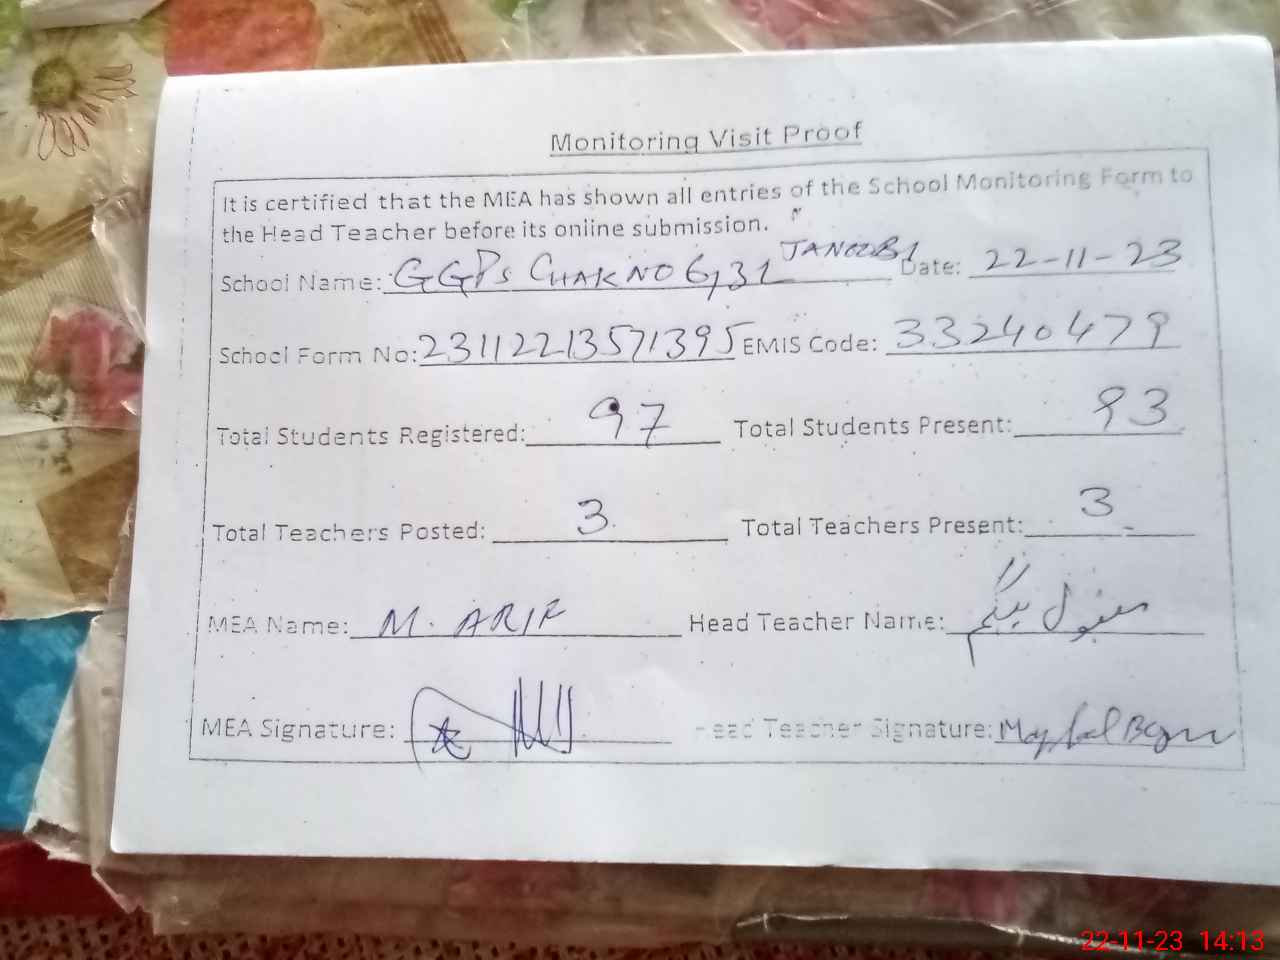 Monitoring Visit Proof
It is certified that the MEA has shown all entries of the School Monitoring Form to
the Head Teacher before its online submission.
School Name: GGPS CHAK NO 6,31 JANOOBI Date: 22-11-23
School Form No: 23112213571395 EMIS Code: 33240479
Total Students Registered: 97 Total Students Present: 93
Total Teachers Posted: 3 Total Teachers Present: 3
MEA Name: M. ARIF Head Teacher Name: مقبول بیگم
MEA Signature: Head Teacher Signature: Maqbool Begum
22-11-23 14:13